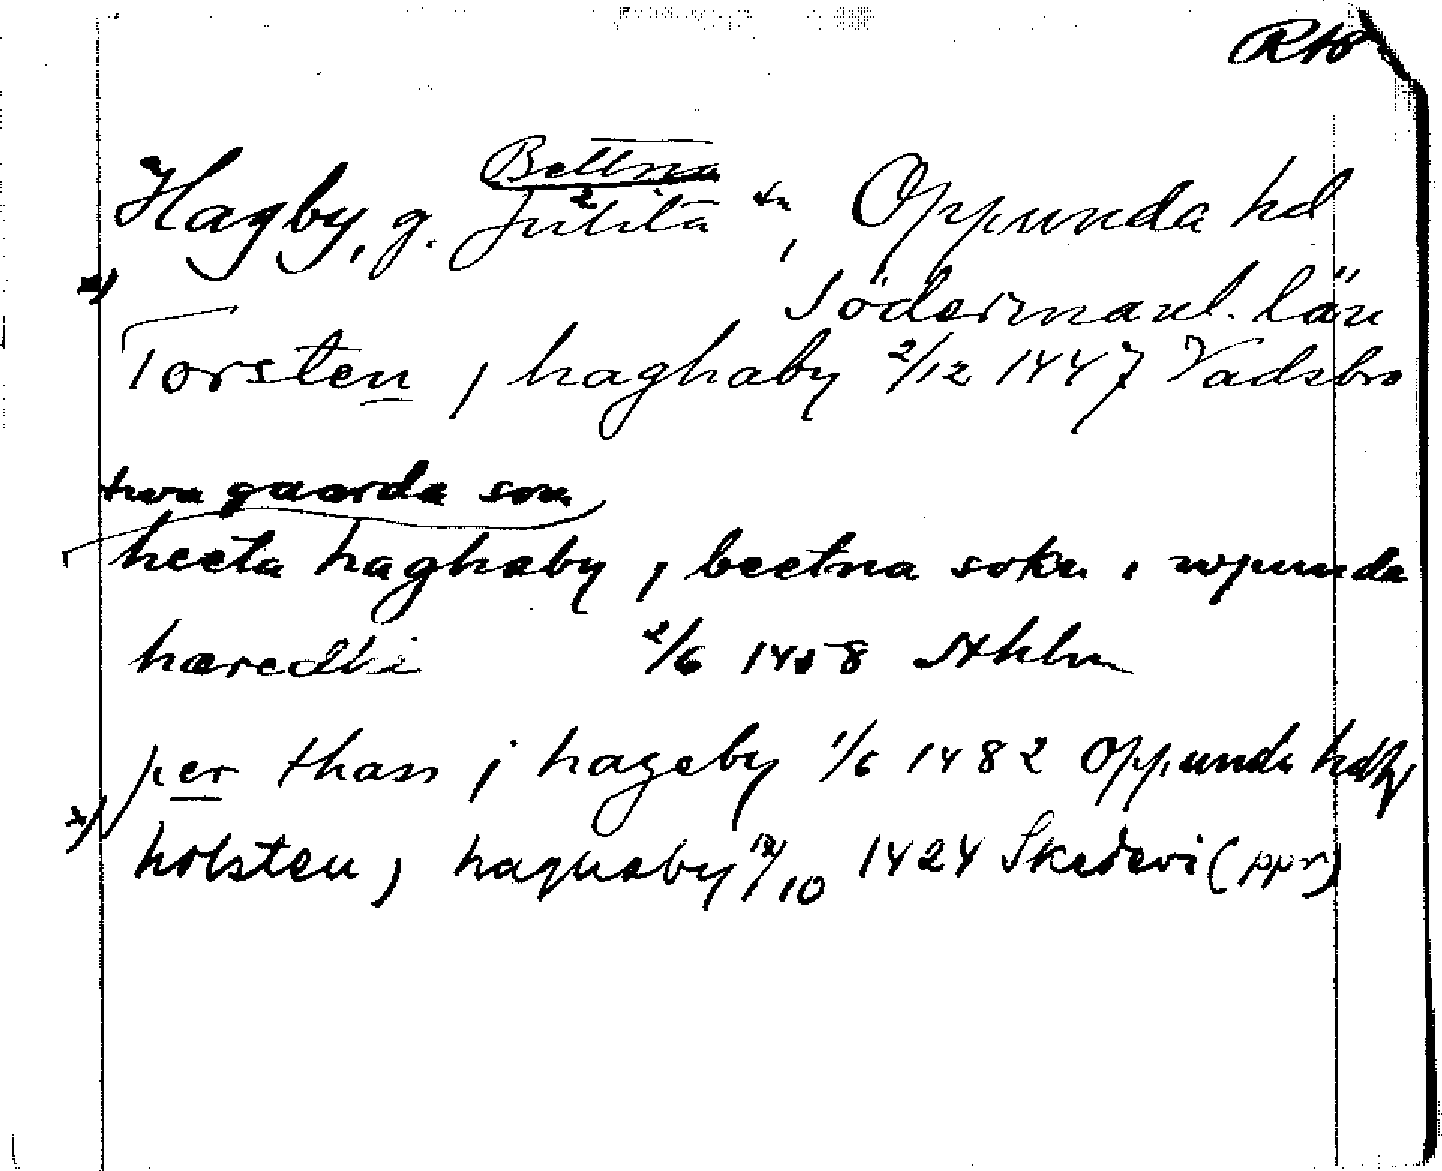 RAO
Bettna
Hagby, g. Julita sn, Oppunda hd
x)
Södermanl. län
Torsten j haghaby 2/12 1447 Vadsbro
twa gaarda som
heeta haghaby j beetna sokn i wpunda
hæredhi 2/6 1458 Sthlm
per thass j hageby 1/6 1482 Oppunda hd
x) holsten j haghaby 12/10 1424 Skedevi (ppr)